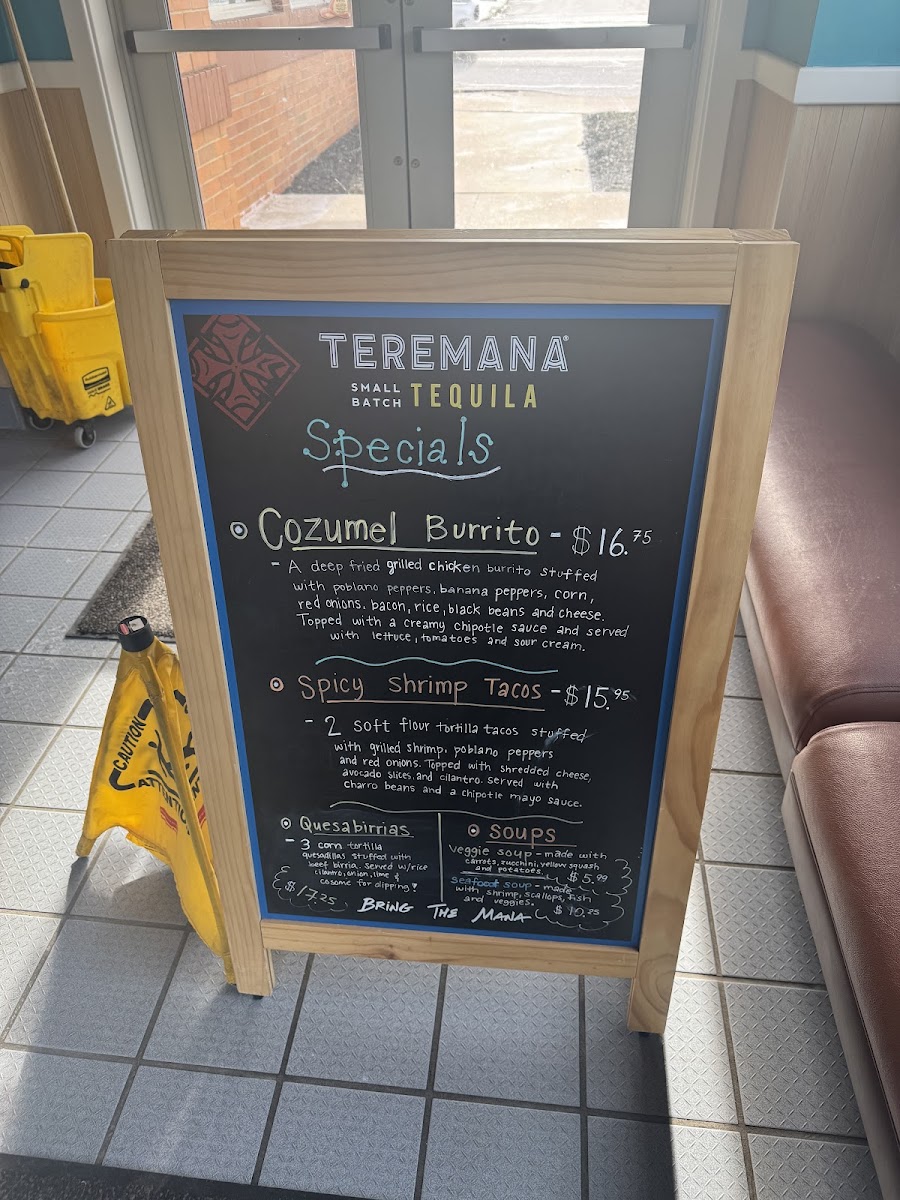 TEREMANA®
SMALL BATCH TEQUILA
Specials
Cozumel Burrito - $16.75
- A deep fried grilled chicken burrito stuffed
with poblano peppers, banana peppers, corn,
red onions, bacon, rice, black beans and cheese.
Topped with a creamy chipotle sauce and served
with lettuce, tomatoes and sour cream.
Spicy Shrimp Tacos - $15.95
- 2 soft flour tortilla tacos stuffed
with grilled shrimp, poblano peppers
and red onions. Topped with shredded cheese,
avocado slices, and cilantro. Served with
charro beans and a chipotle mayo sauce.
Quesabirrias
- 3 corn tortilla
quesadillas stuffed with
beef birria. Served w/rice
cilantro, onion, lime &
cosome for dipping!
$17.25
Soups
Veggie soup - made with
carrots, zucchini, yellow squash
and potatoes.
$5.99
Seafood soup - made
with shrimp, scallops, fish
and veggies.
BRING THE MANA
CAUTION